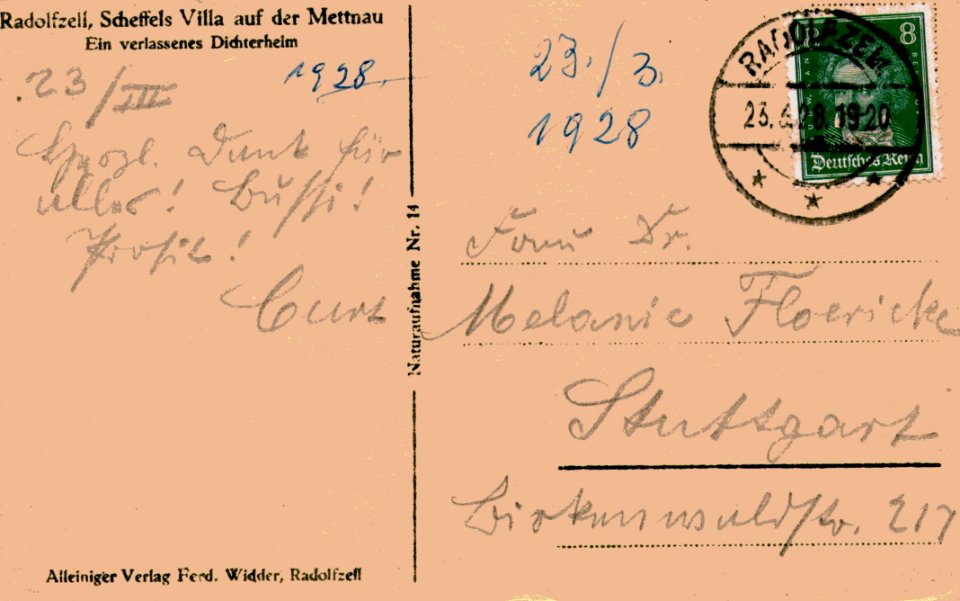 Radolfzell, Scheffels Villa auf der Mettnau
Ein verlassenes Dichterheim
23/III 1928
Dank für
alles! Bussi!
Prosit!
Curt
Naturaufnahme Nr. 14
Alleiniger Verlag Ferd. Widder, Radolfzell
23./3.
1928
RADOLFZELL
8
Deutsches Reich
Frau Dr.
Melanie Floericke
Stuttgart
Birkenwaldstr. 217